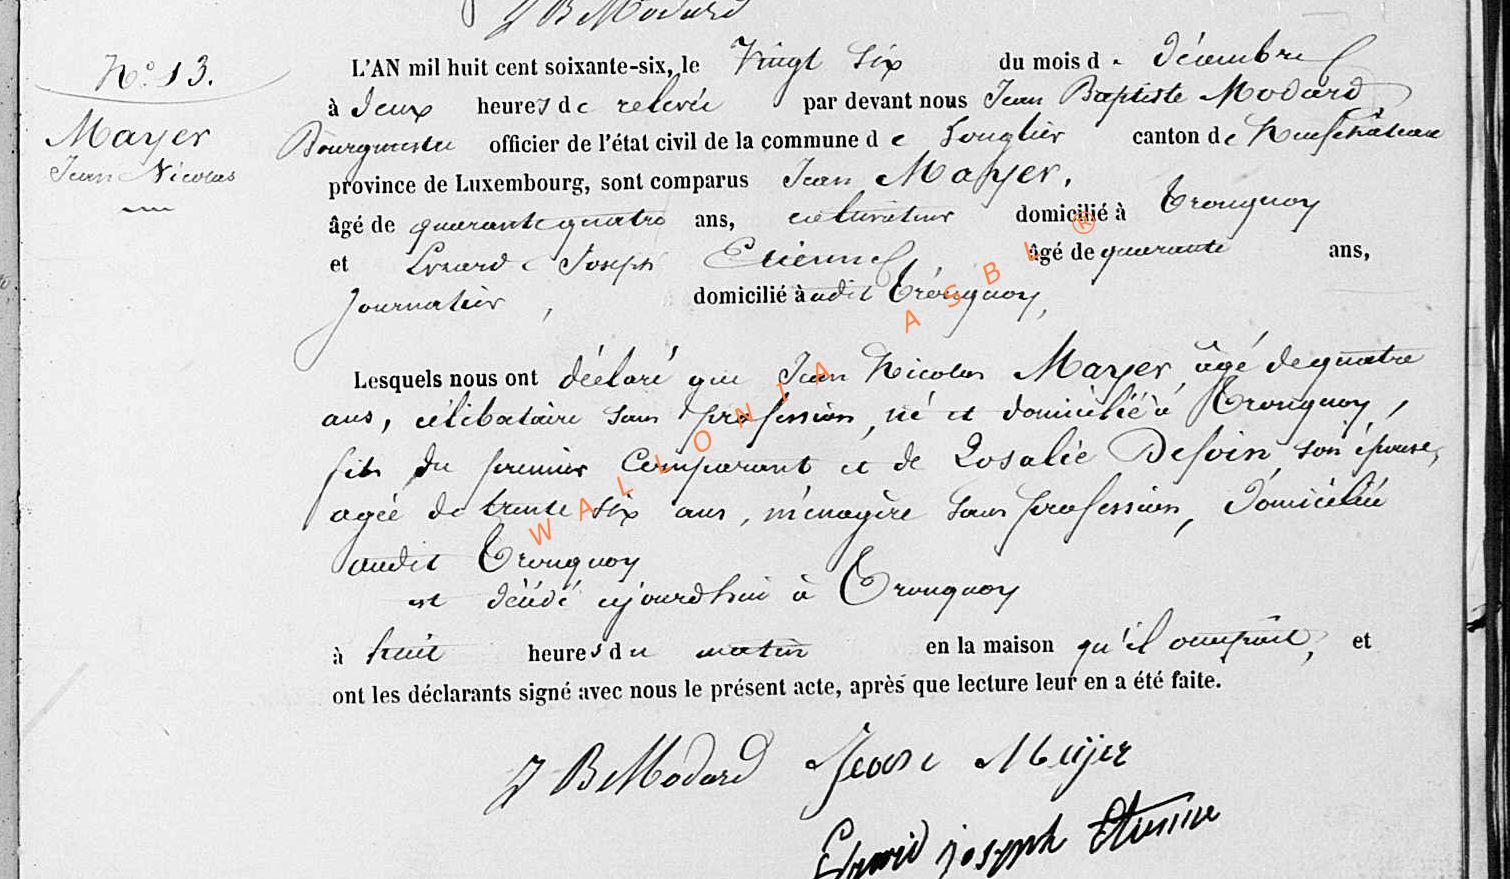 J B Modard
N.° 13.
Mayer
Jean Nicolas
L'AN mil huit cent soixante-six, le Vingt six du mois de décembre
à deux heures de relevée par devant nous Jean Baptiste Modard,
Bourgmestre officier de l'état civil de la commune de Longlier canton de Neufchâteau
province de Luxembourg, sont comparus Jean Mayer,
âgé de quarante quatre ans, cultivateur domicilié à Tronquoy
et Erard Joseph Etienne âgé de quarante ans,
journalier, domicilié audit Tronquoy,
Lesquels nous ont déclaré que Jean Nicolas Mayer, âgé de quatre
ans, célibataire sans profession, né et domicilié à Tronquoy,
fils du premier Comparant et de Rosalie Defoin son épouse,
agée de trente six ans, ménagère sans profession, domiciliée
audit Tronquoy
est décédé aujourdhui à Tronquoy
à huit heures du matin en la maison qu'il occupait, et
ont les déclarants signé avec nous le présent acte, après que lecture leur en a été faite.
J B Modard Jean Meijer
Erard joseph Etienne
WALLONIA ASBL ®